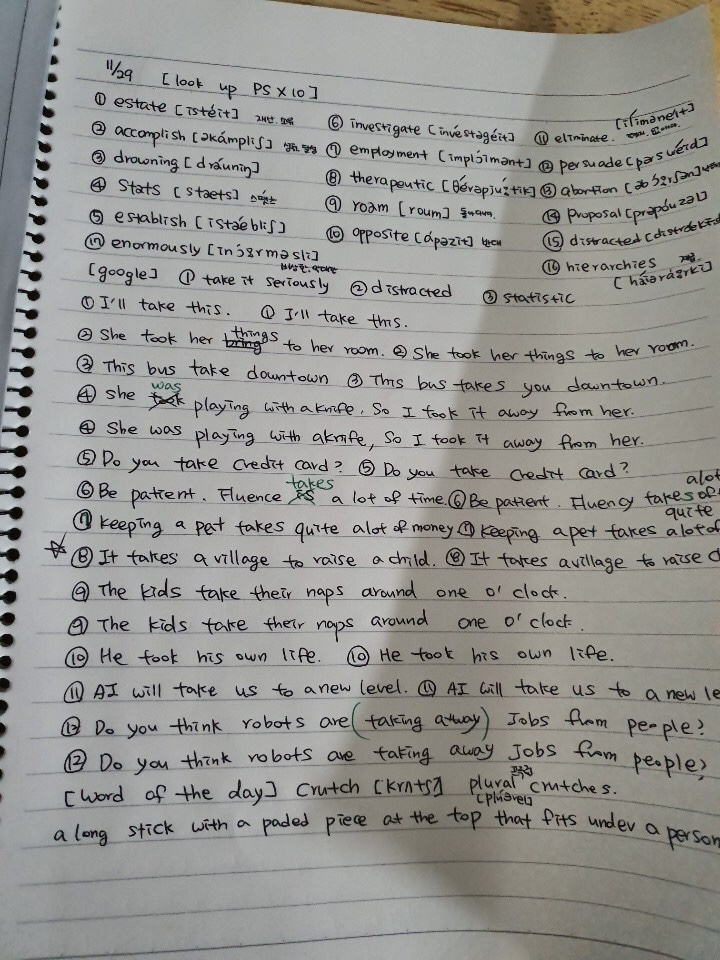 11/29 [look up PS X 10]
① estate [istéit] ⑥ investigate [invéstəgéit] ⑪ eliminate.
② accomplish [əkámpliʃ] ⑦ employment [implɔ́imənt] ⑫ persuade [pərswéid]
③ drowning [dráuniŋ] ⑧ therapeutic [θérəpjú:tik] ⑬ abortion
④ Stats [stæts] ⑨ roam [roum] ⑭ Proposal [prəpóuzəl]
⑤ establish [istǽbliʃ] ⑩ opposite [ápəzit] 반대 ⑮ distracted
⑰ enormously [inɔ́:rməsli] ⑯ hierarchies
[google] ① take it seriously ② distracted ③ statistic
① I'll take this. ① I'll take this.
② She took her things to her room. ② She took her things to her room.
③ This bus take downtown ③ This bus takes you downtown.
④ she was playing with a knife. So I took it away from her.
④ She was playing with aknife, So I took it away from her.
⑤ Do you take credit card? ⑤ Do you take credit card?
⑥ Be patient. Fluence takes a lot of time. ⑥ Be patient. Fluency takes alot of
⑦ Keeping a pet takes quite alot of money ⑦ Keeping apet takes quite alot of
⑧ It takes a village to raise a child. ⑧ It takes avillage to raise
⑨ The kids take their naps around one o'clock.
⑨ The kids take their naps around one o'clock.
⑩ He took his own life. ⑩ He took his own life.
⑪ AI will take us to a new level. ⑪ AI will take us to a new le
⑫ Do you think robots are (taking away) Jobs from people?
⑫ Do you think robots are taking away Jobs from people?
[word of the day] Crutch [krʌtʃ] plural crutches.
a long stick with a paded piece at the top that fits under a person